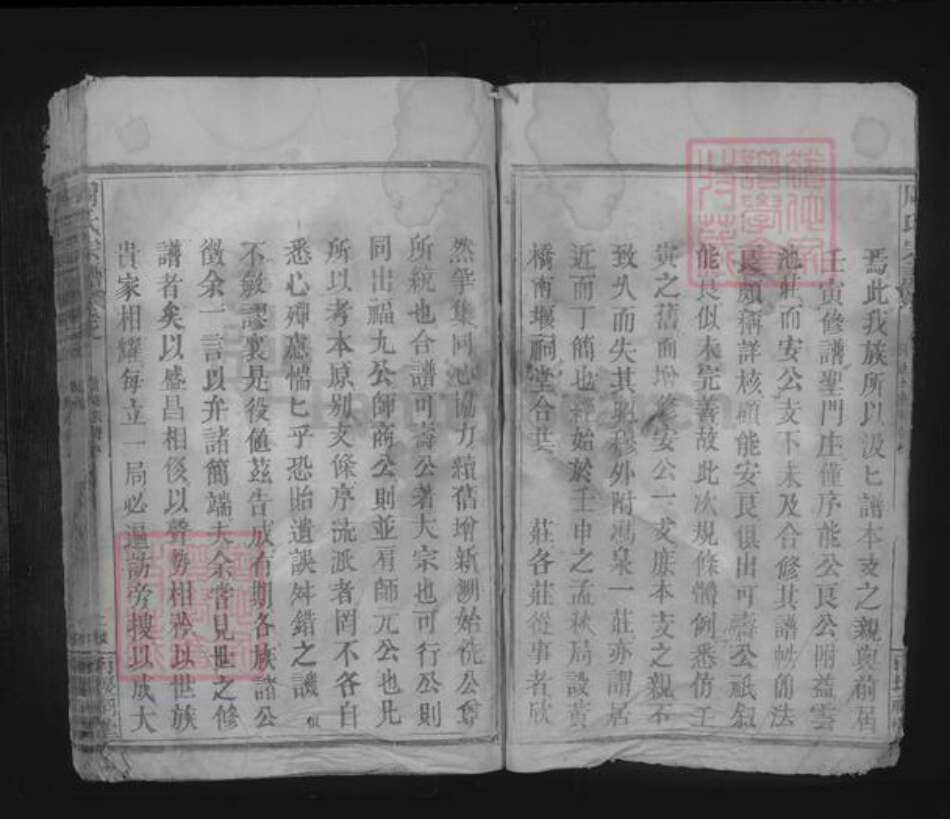 焉此我族所以汲匕譜本支之親與前屆
壬寅修譜聖門庄僅序能公良公附益雲
池莊而安公支下未及合修其譜帙簡法
良頗稱詳核顧能安良俱由可壽公祇叙
能良似未完善故此次規條體例悉仿壬
寅之舊而增修安公一支庶本支之親不
致久而失其昭穆外附馮泉一莊亦謂居
近而丁簡也經始於壬申之孟秋局設黄
橋南堰嗣堂合共　莊各莊從事者欣
然筆集同心協力續舊增新溯始侁公尊
所統也合譜可壽公著大宗也可行公則
同出福九公師商公則並肩師元公也凡
所以考本原别支條序流派者罔不各自
悉心殫慮惴匕乎恐貽遺誤舛錯之譏 伹
不敏謬襄是役値茲告成有期各族諸公
徵余一言以弁諸簡端夫余嘗見世之修
譜者矣以盛昌相後以聲勢相衿以世族
貴家相耀每立一局必遍訪旁搜以成大